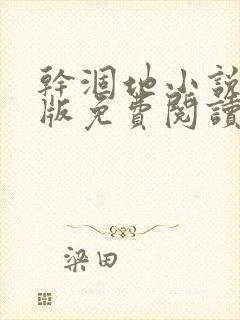 幹涸地小說
版免費閱讀
梁田